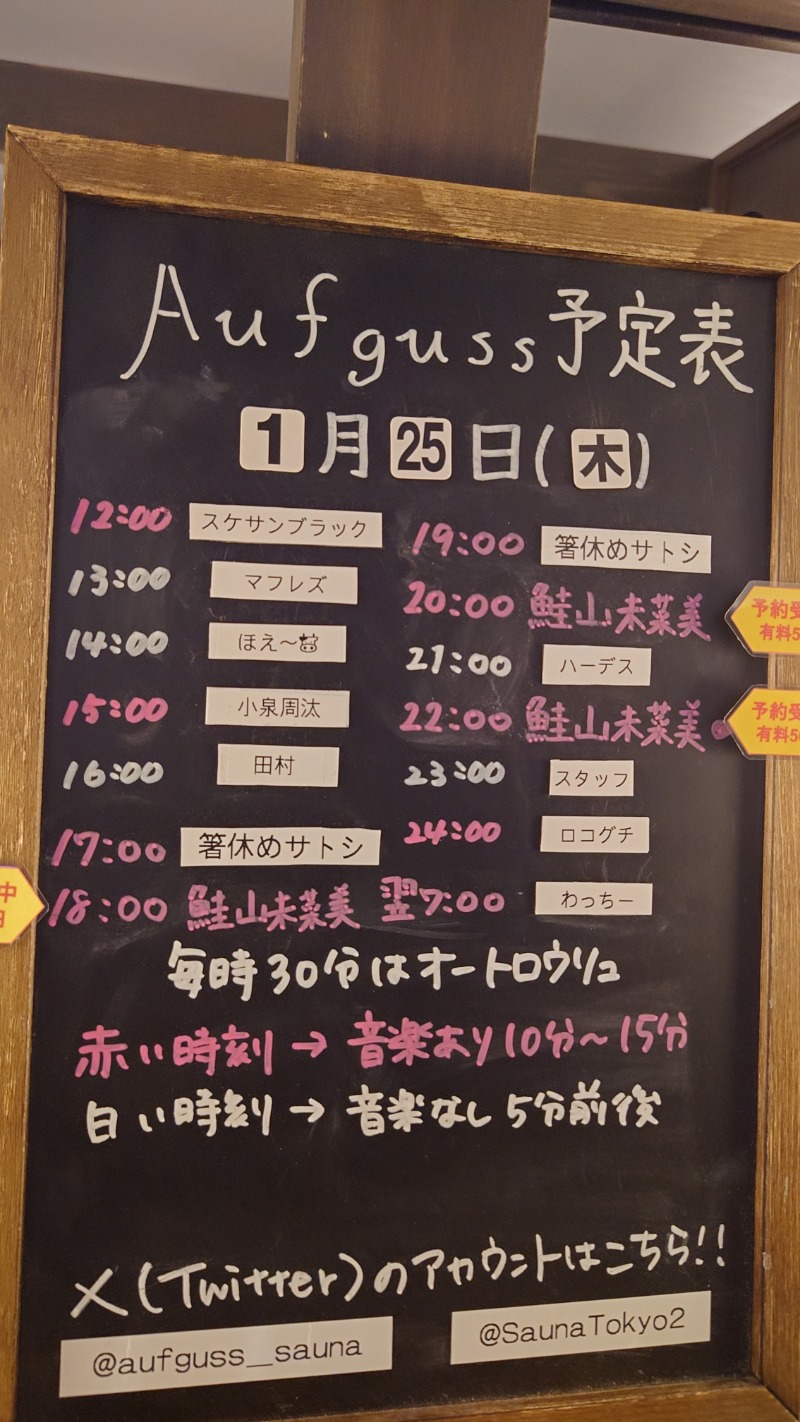 Aufguss予定表
1月25日(木)
12:00 スケサンブラック
13:00 マフレズ
14:00 ほえ〜
15:00 小泉周汰
16:00 田村
17:00 箸休めサトシ
18:00 鮭山未菜美
19:00 箸休めサトシ
20:00 鮭山未菜美
21:00 ハーデス
22:00 鮭山未菜美
23:00 スタッフ
24:00 ロコグチ
翌7:00 わっちー
予約受
有料5
予約受
有料50
中
毎時30分はオートロウリュ
赤い時刻→音楽あり10分〜15分
白い時刻→音楽なし5分前後
X(Twitter)のアカウントはこちら!!
@aufguss__sauna
@SaunaTokyo2